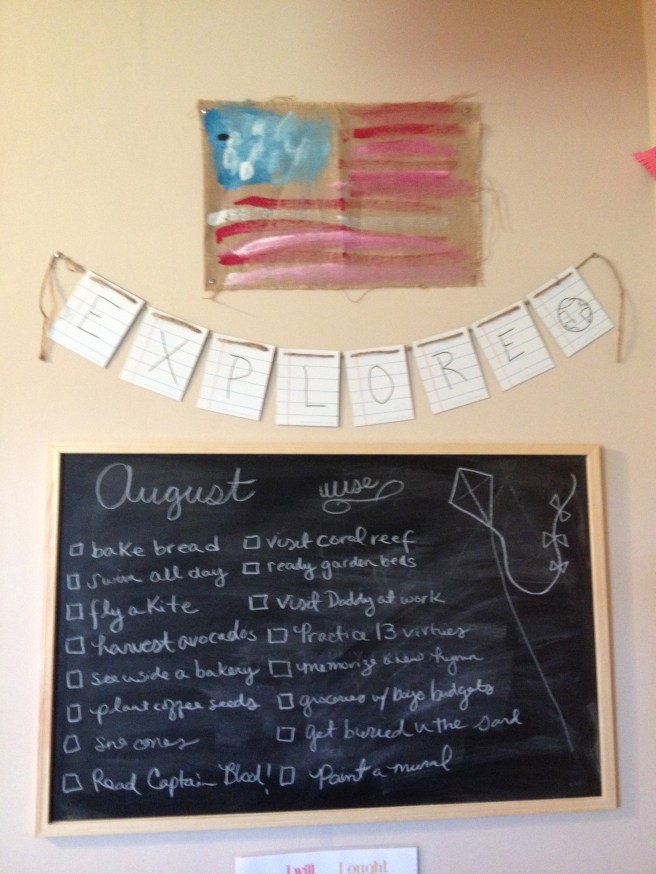 EXPLORE
August wise
bake bread
swim all day
fly a Kite
harvest avocados
see inside a bakery
plant coffee seeds
sno cones
Read Captain Blood!
visit coral reef
ready garden beds
visit Daddy at work
Practice 13 virtues
memorize a new hymn
groceries w/ boys budgets
get buried in the sand
Paint a mural
I will I ought